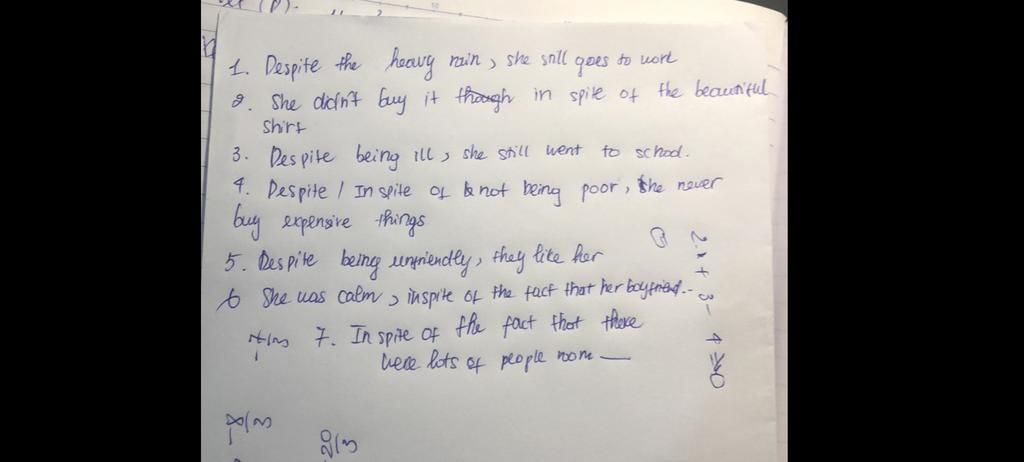 1. Despite the heavy rain, she still goes to work
2. She didn't buy it though in spite of the beautiful
shirt
3. Despite being ill, she still went to school.
4. Despite / In spite of not being poor, she never
buy expensive things
5. Despite being unfriendly, they like her
6 She was calm, inspite of the fact that her boyfriend..
7. In spite of the fact that there
were lots of people room —